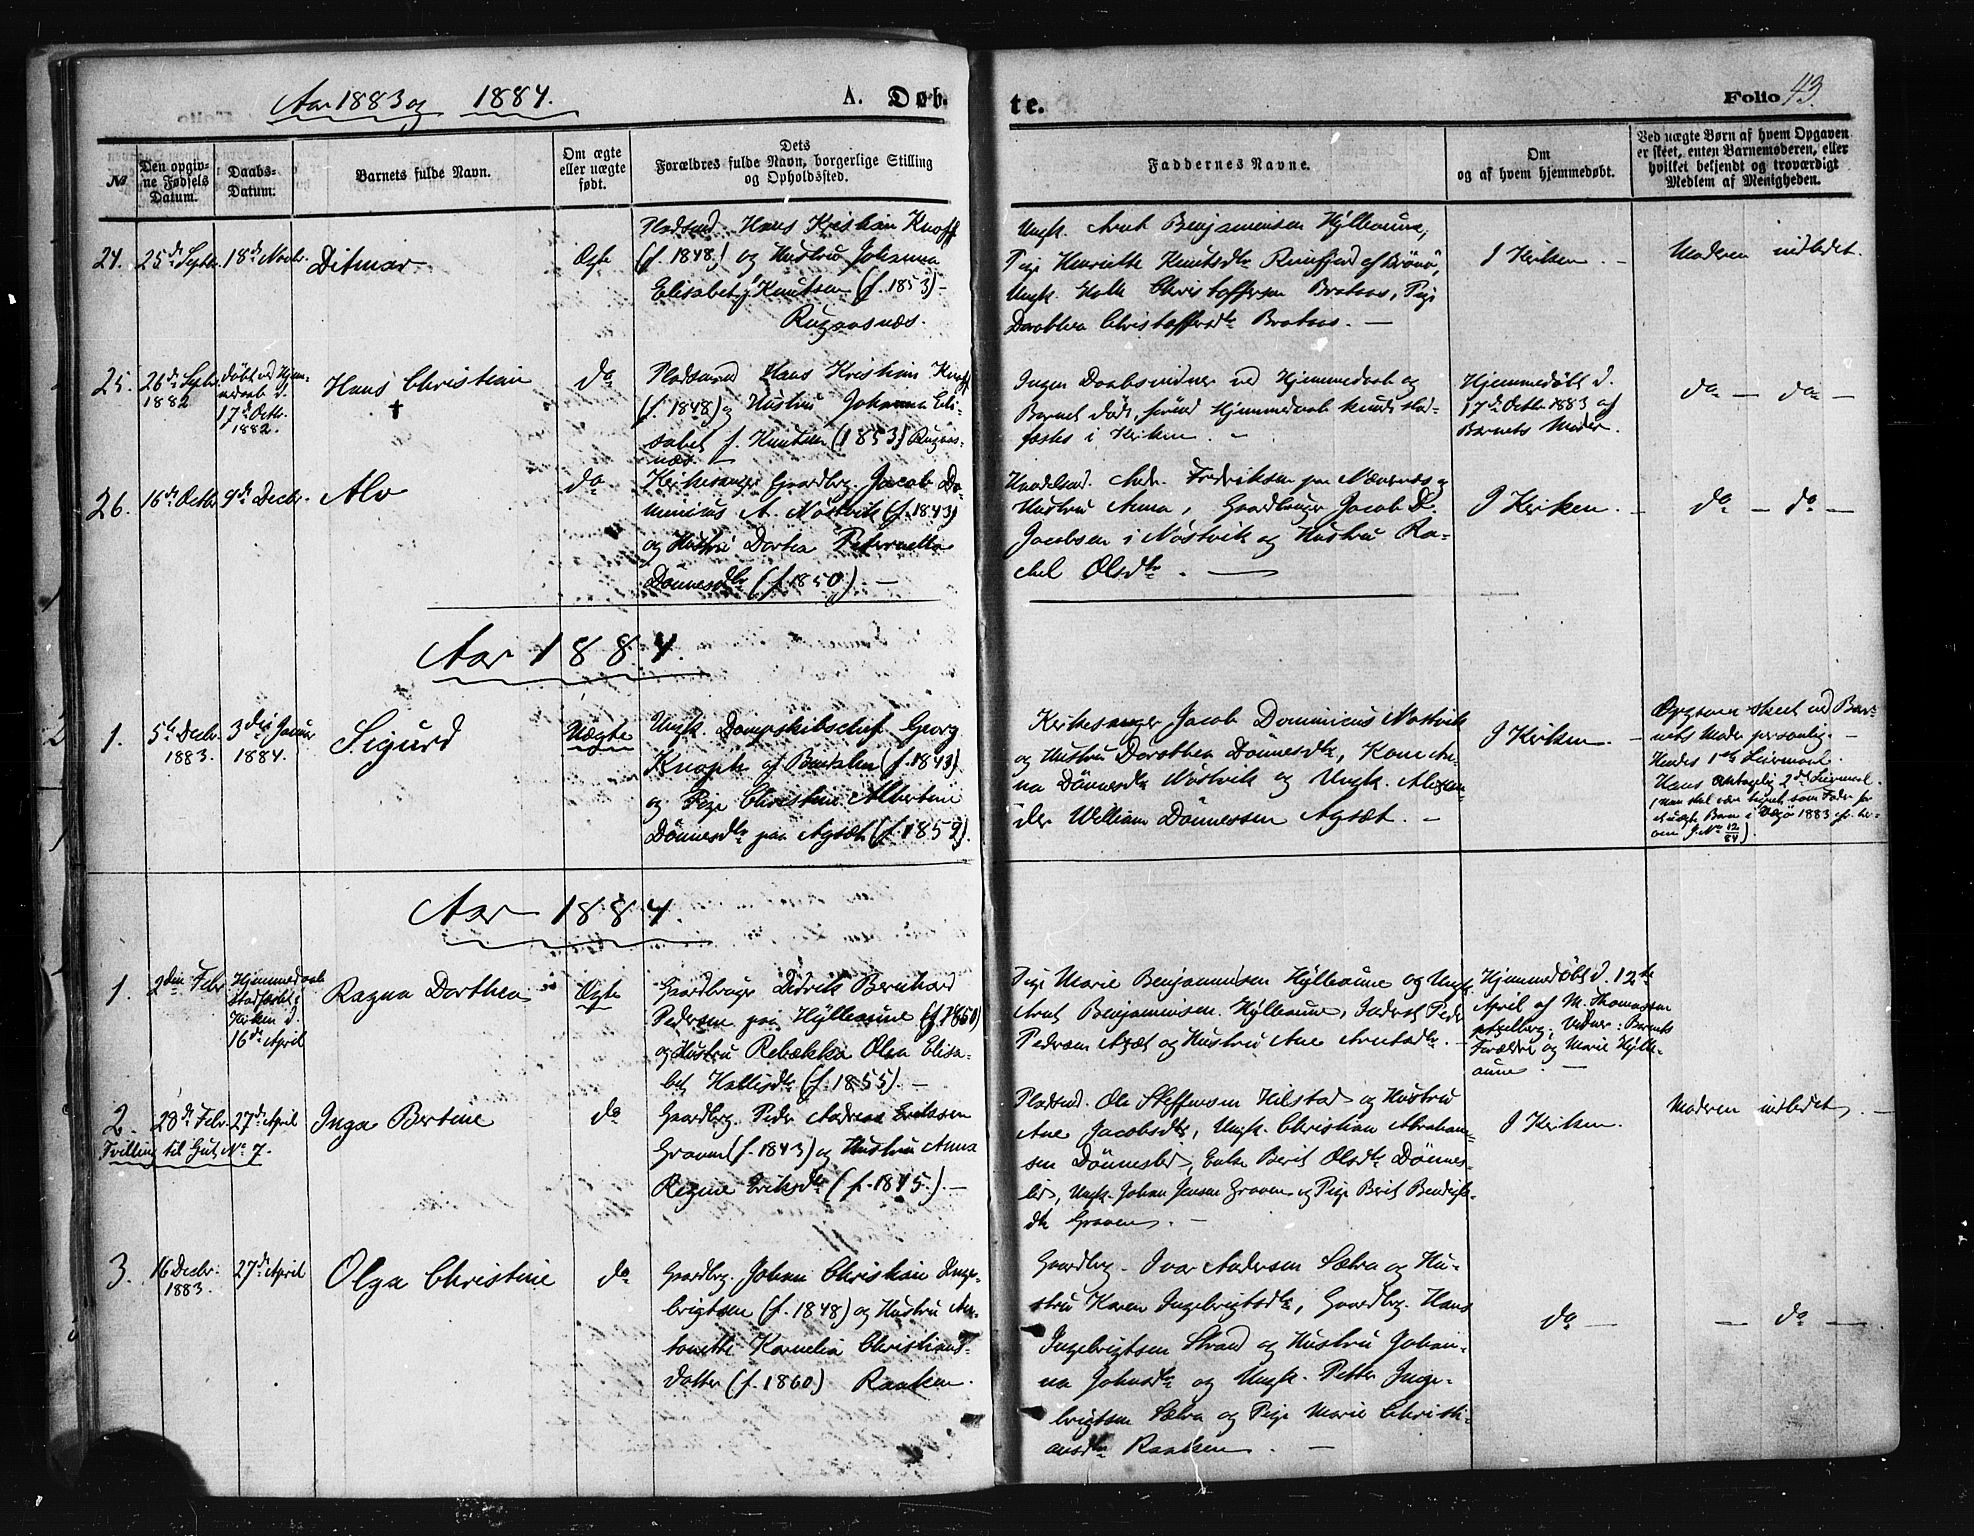 Aar 1883 og 1884.
A. Døb-
te.
Folio 43.
No
Den opgiv-
ne Fødsels
Datum.
Daabs-
Datum.
Barnets fulde Navn.
Om ægte
eller uægte
født.
Dets
Forældres fulde Navn, borgerlige Stilling
og Opholdssted.
Faddernes Navne.
Om
og af hvem hjemmedøbt.
Ved uægte Børn af hvem Opgaven
er skeet, enten Barnemoderen, eller
hvilket bekjendt og troværdigt
Medlem af Menigheden.
24.
25de Septbr.
18de Novbr.
Ditmar
Ægte
Pladsmd. Hans Kristian Knoff
(f. 1848) og Hustru Johanna
Elisabet f. Knutsen (f. 1853) –
Rugaasnæs.
Ungk. Arnt Benjaminsen Hylleaune,
Pige Henriette Knutsdtr. af Brönö,
Ungk. Christoffersen Brataas, Pige
Dorothea Christoffersdtr. Brataas. –
I Kirken. –
Moderen indledet.
25.
26de Septbr.
1882
døbt ved Hjem-
medaab d.
17de Octb.
1882.
Hans Christian
†
do
Pladsmd Hans Kristian Knoff
(f. 1848) og Hustru Johanna Eli-
sabet f. Knutsen (1853) Rugaas-
næs. –
Ingen Daabsvidner ved Hjemmedaab og
Barnet døde, førend Hjemmedaab kunde stad-
fæstes i Kirken. –
Hjemmedøbt d.
17de Octbr. 1883 af
Barnets Moder.
do – do –
26.
16de Octbr.
9de Decbr.
Alv
do
Kirkesanger Gaardbrg. Jacob Do-
minicus A. Nöstvik (f. 1843)
og Hustru Dortea Peternella
Dönnesdtr. (f. 1850). –
Handelsmd. Andr. Fredriksen paa Nævernæs og
Hustru Anna, Gaardbruger Jacob D.
Jacobsen i Nöstvik og Hustru Ra-
chel Olsdtr. –
I Kirken. –
do – do –
Aar 1884.
1.
5te Decbr.
1883.
3die Januar
1884.
Sigurd
Uægte
Ungk. Dampskibschef Georg
Knoph af Bindalen (f. 1843)
og Pige Christine Albertine
Dönnesdtr. paa Agsæt (f. 1859).
Kirkesanger Jacob Dominicus Nöstvik
og Hustru Dorothea Dönnesdtr., Kone An-
na Dönnesdtr. Nöstvik og Ungk. Alexan-
der William Dönnessen Agsæt. –
I Kirken. –
Opgaven skeet ved Bar-
nets Moder personlig. –
Hendes 1ste Leiermaal.
Hans antagelig 2det Leiermaal.
(Han skal være opgivet som Fader for
et uægte Barn i Vægö 1883 cfr. her-
om J. No 12/84)
Aar 1884.
1.
2den Febr
Hjemmedaab
stadfæstet i
Kirken d.
16de April
Ragna Dorthea
Ægte
Gaardbruger Didrik Bernhard
Pedersen paa Hylleaune (f. 1860)
og Hustru Rebækka Olea Elisa-
bet Kallisdtr. (f. 1855). –
Pige Marie Benjaminsen Hylleaune og Ungk.
Arnt Benjaminsen Hylleaune, Inderst Peder
Pedersen Agsæt og Hustru Ane Arntsdtr. –
Hjemmedøbt d. 12te
April af M. Thomassen
; Vidner: Barnets
Forældre og Marie Hylle-
aune –
2.
28de Febr.
27de April
Tvilling til Gut No 7.
Inga Bertine
do
Gaardbrg. Peder Andreas Eriksen
Graven (f. 1843) og Hustru Anna
Regine Eriksdtr (f. 1845.) –
Pladsmd. Ole Steffensen Hilstad og Hustru
Ane Jacobsdtr, Ungk. Christian Abraham-
sen Dönneslid, Enke Berit Olsdtr. Dönnes-
lid, Ungk. Johan Jensen Graven og Pige Berit
dtr Graven. –
I Kirken.
Moderen indledet. –
3.
16 Decbr.
1883.
27de April
Olga Christine
do
Gaardbrg. Johan Christian Inge-
brigtsen (f. 1848) og Hustru An-
tonette Kornelia Christians-
datter (f. 1860) Raaken.
Gaardbrg. Ivar Andersen Sætra og Hu-
stru Karen Ingebrigtsdtr, Gaardbrg. Hans
Ingebrigtsen Strand og Hustru Johan-
na Johnsdtr og Ungk. Petter Inge-
brigtsen Sætra og Pige Marie Christi-
ansdtr Raaken. –
do –
– do –